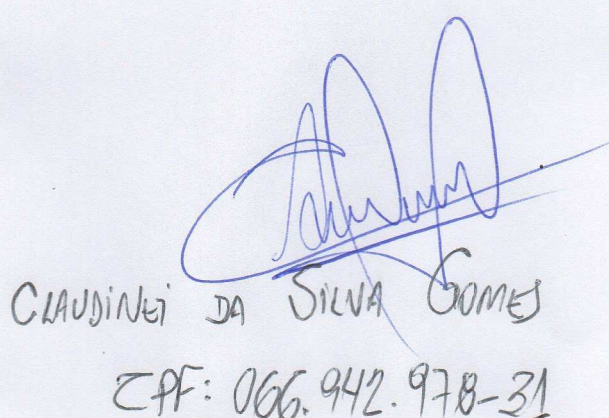 CLAUDINEI DA SILVA GOMES
CPF: 066.942.978-31